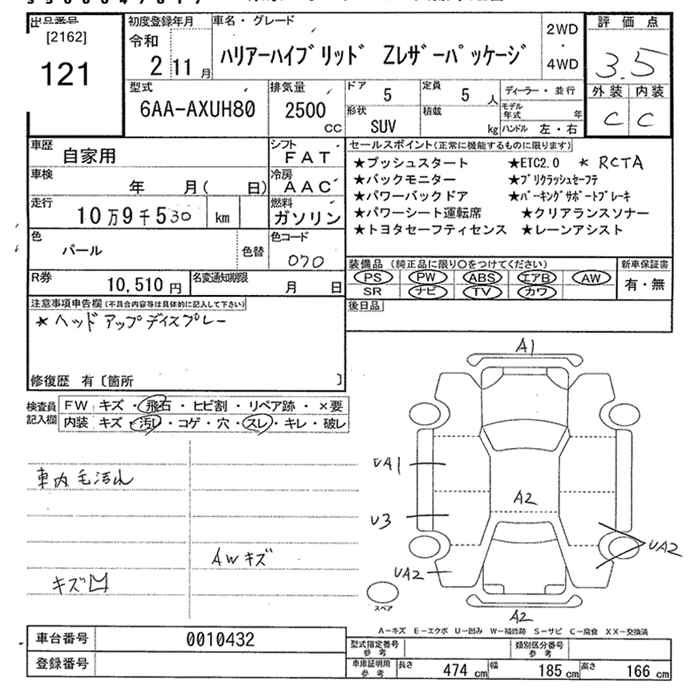 出品番号
[2162]
121
初度登録年月
令和
2 11月
車名・グレード
ハリアーハイブリッド Zレザーパッケージ
2WD
・
4WD
評価点
3.5
外装 内装
C C
型式
6AA-AXUH80
排気量
2500
CC
ドア
5
定員
5 人
形状
SUV
積載
kg
ディーラー・並行
モデル年式 年
ハンドル 左・右
車歴
自家用
シフト
FAT
車検
年 月( 日)
冷房
AAC
走行
10万9千530 km
燃料
ガソリン
色
パール
色替
色コード
070
R券
10,510 円
名変通知期限
月 日
セールスポイント(正常に機能するものに限ります)
★プッシュスタート ★ETC2.0 ★RCTA
★バックモニター ★プリクラッシュセーフテ
★パワーバックドア ★パーキングサポートブレーキ
★パワーシート運転席 ★クリアランスソナー
★トヨタセーフティセンス ★レーンアシスト
装備品 (純正品に限り○をつけてください)
PS PW ABS エアB AW
SR ナビ TV カワ
新車保証書
有・無
後日品
注意事項申告欄(不具合内容等は具体的に記入して下さい)
★ヘッドアップディスプレー
修復歴 有〔箇所 〕
検査員記入欄
FW キズ・飛石・ヒビ割・リペア跡・×要
内装 キズ・汚レ・コゲ・穴・スレ・キレ・破レ
車内毛汚レ
AWキズ
キズ凹
A1
UA1
A2
U3
UA2
UA2
A2
スペア
A-キズ E-エクボ U-凹み W-補修跡 S-サビ C-腐食 XX-交換済
車台番号 0010432
登録番号
型式指定番号 参考
類別区分番号 参考
車庫証明用 参考
長さ 474 cm 幅 185 cm 高さ 166 cm